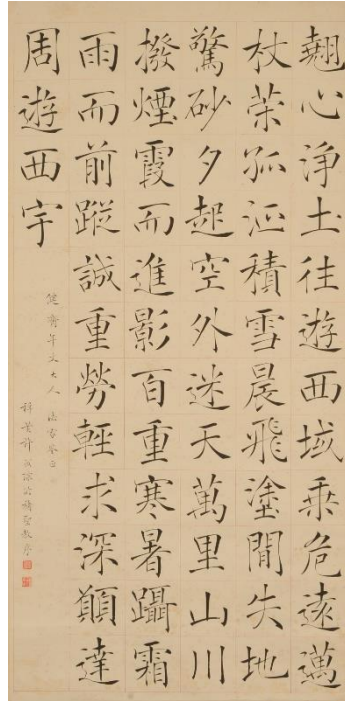 翹心淨土往遊西域乘危遠邁
杖策孤征積雪晨飛塗閒失地
驚砂夕起空外迷天萬里山川
撥煙霞而進影百重寒暑躡霜
雨而前蹤誠重勞輕求深願達
周遊西宇
年丈大人 法家
臨褚聖教序